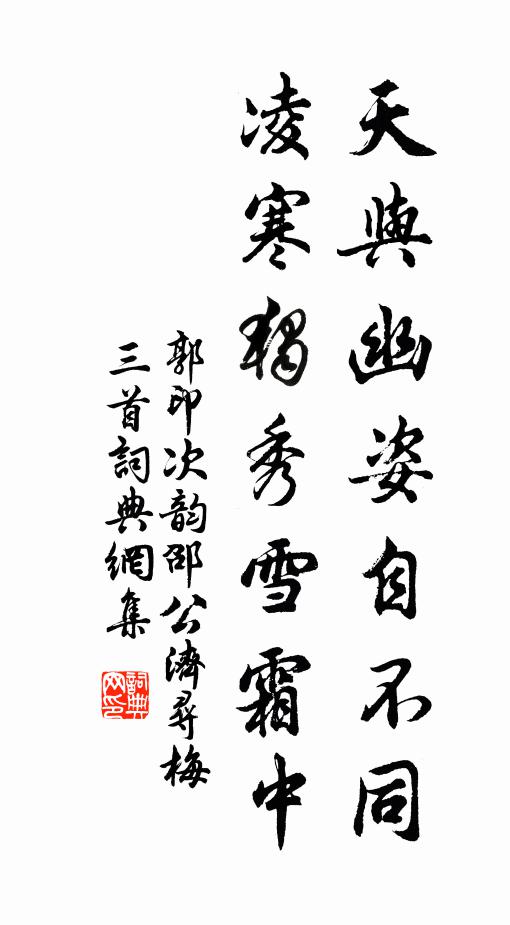 天與幽姿自不同
凌寒獨秀雪霜中
郭印次韵邵公濟尋梅
三首詞典網集
詞典
网印